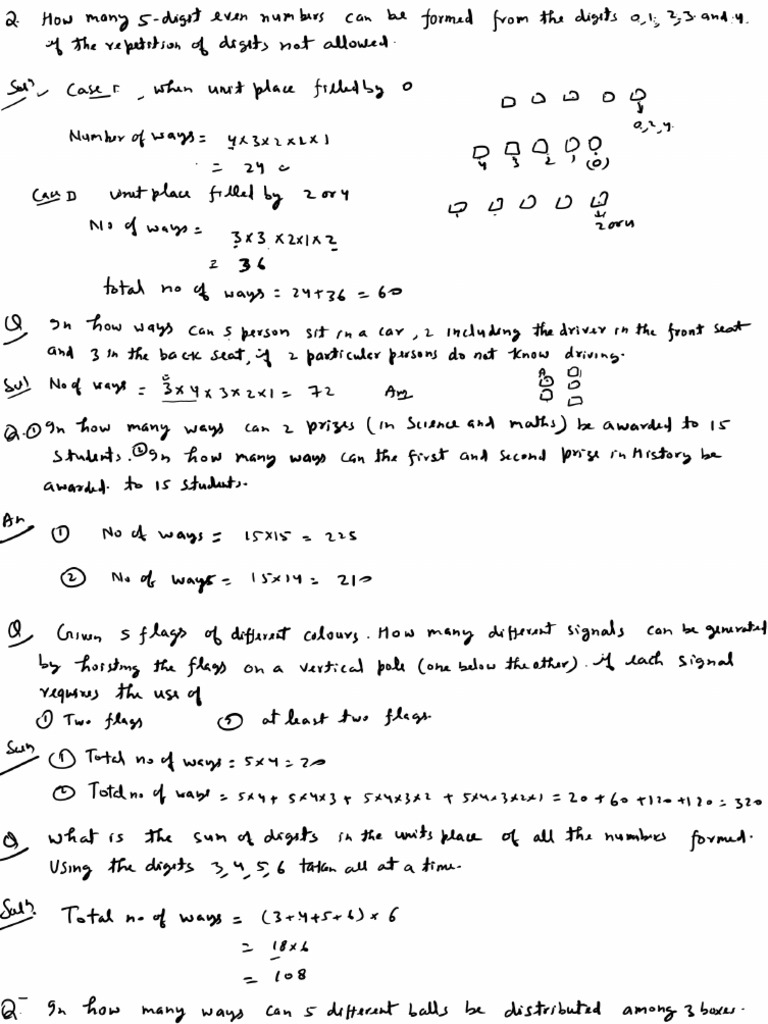 2. How many 5-digit even numbers can be formed from the digits 0,1,2,3 and 4.
if the repetition of digits not allowed.
Solⁿ, Case I , when unit place filled by 0
0,2,4.
Number of ways = 4×3×2×1×1
4 3 2 1 (0)
= 24
Case II unit place filled by 2 or 4
2 or 4
No of ways = 3×3×2×1×2
= 36
total no of ways = 24+36 = 60
Q In how ways can 5 person sit in a car, 2 including the driver in the front seat
and 3 in the back seat, if 2 particular persons do not know driving.
Sol No of ways = 3×4×3×2×1 = 72 Ans
Q.① In how many ways can 2 prizes (in Science and maths) be awarded to 15
students. ② In how many ways can the first and second prize in History be
awarded to 15 students.
An ① No of ways = 15×15 = 225
② No of ways = 15×14 = 210
Q Given 5 flags of different colours. How many different signals can be generated
by hoisting the flags on a vertical pole (one below the other). if each signal
requires the use of
① Two flags ② at least two flags.
Soln ① Total no of ways = 5×4 = 20
② Total no of ways = 5×4+ 5×4×3+ 5×4×3×2 + 5×4×3×2×1 = 20+60+120+120 = 320
Q What is the sum of digits in the units place of all the numbers formed.
Using the digits 3,4,5,6 taken all at a time.
Solⁿ. Total no of ways = (3+4+5+6)×6
= 18×6
= 108
Q- In how many ways can 5 different balls be distributed among 3 boxes.